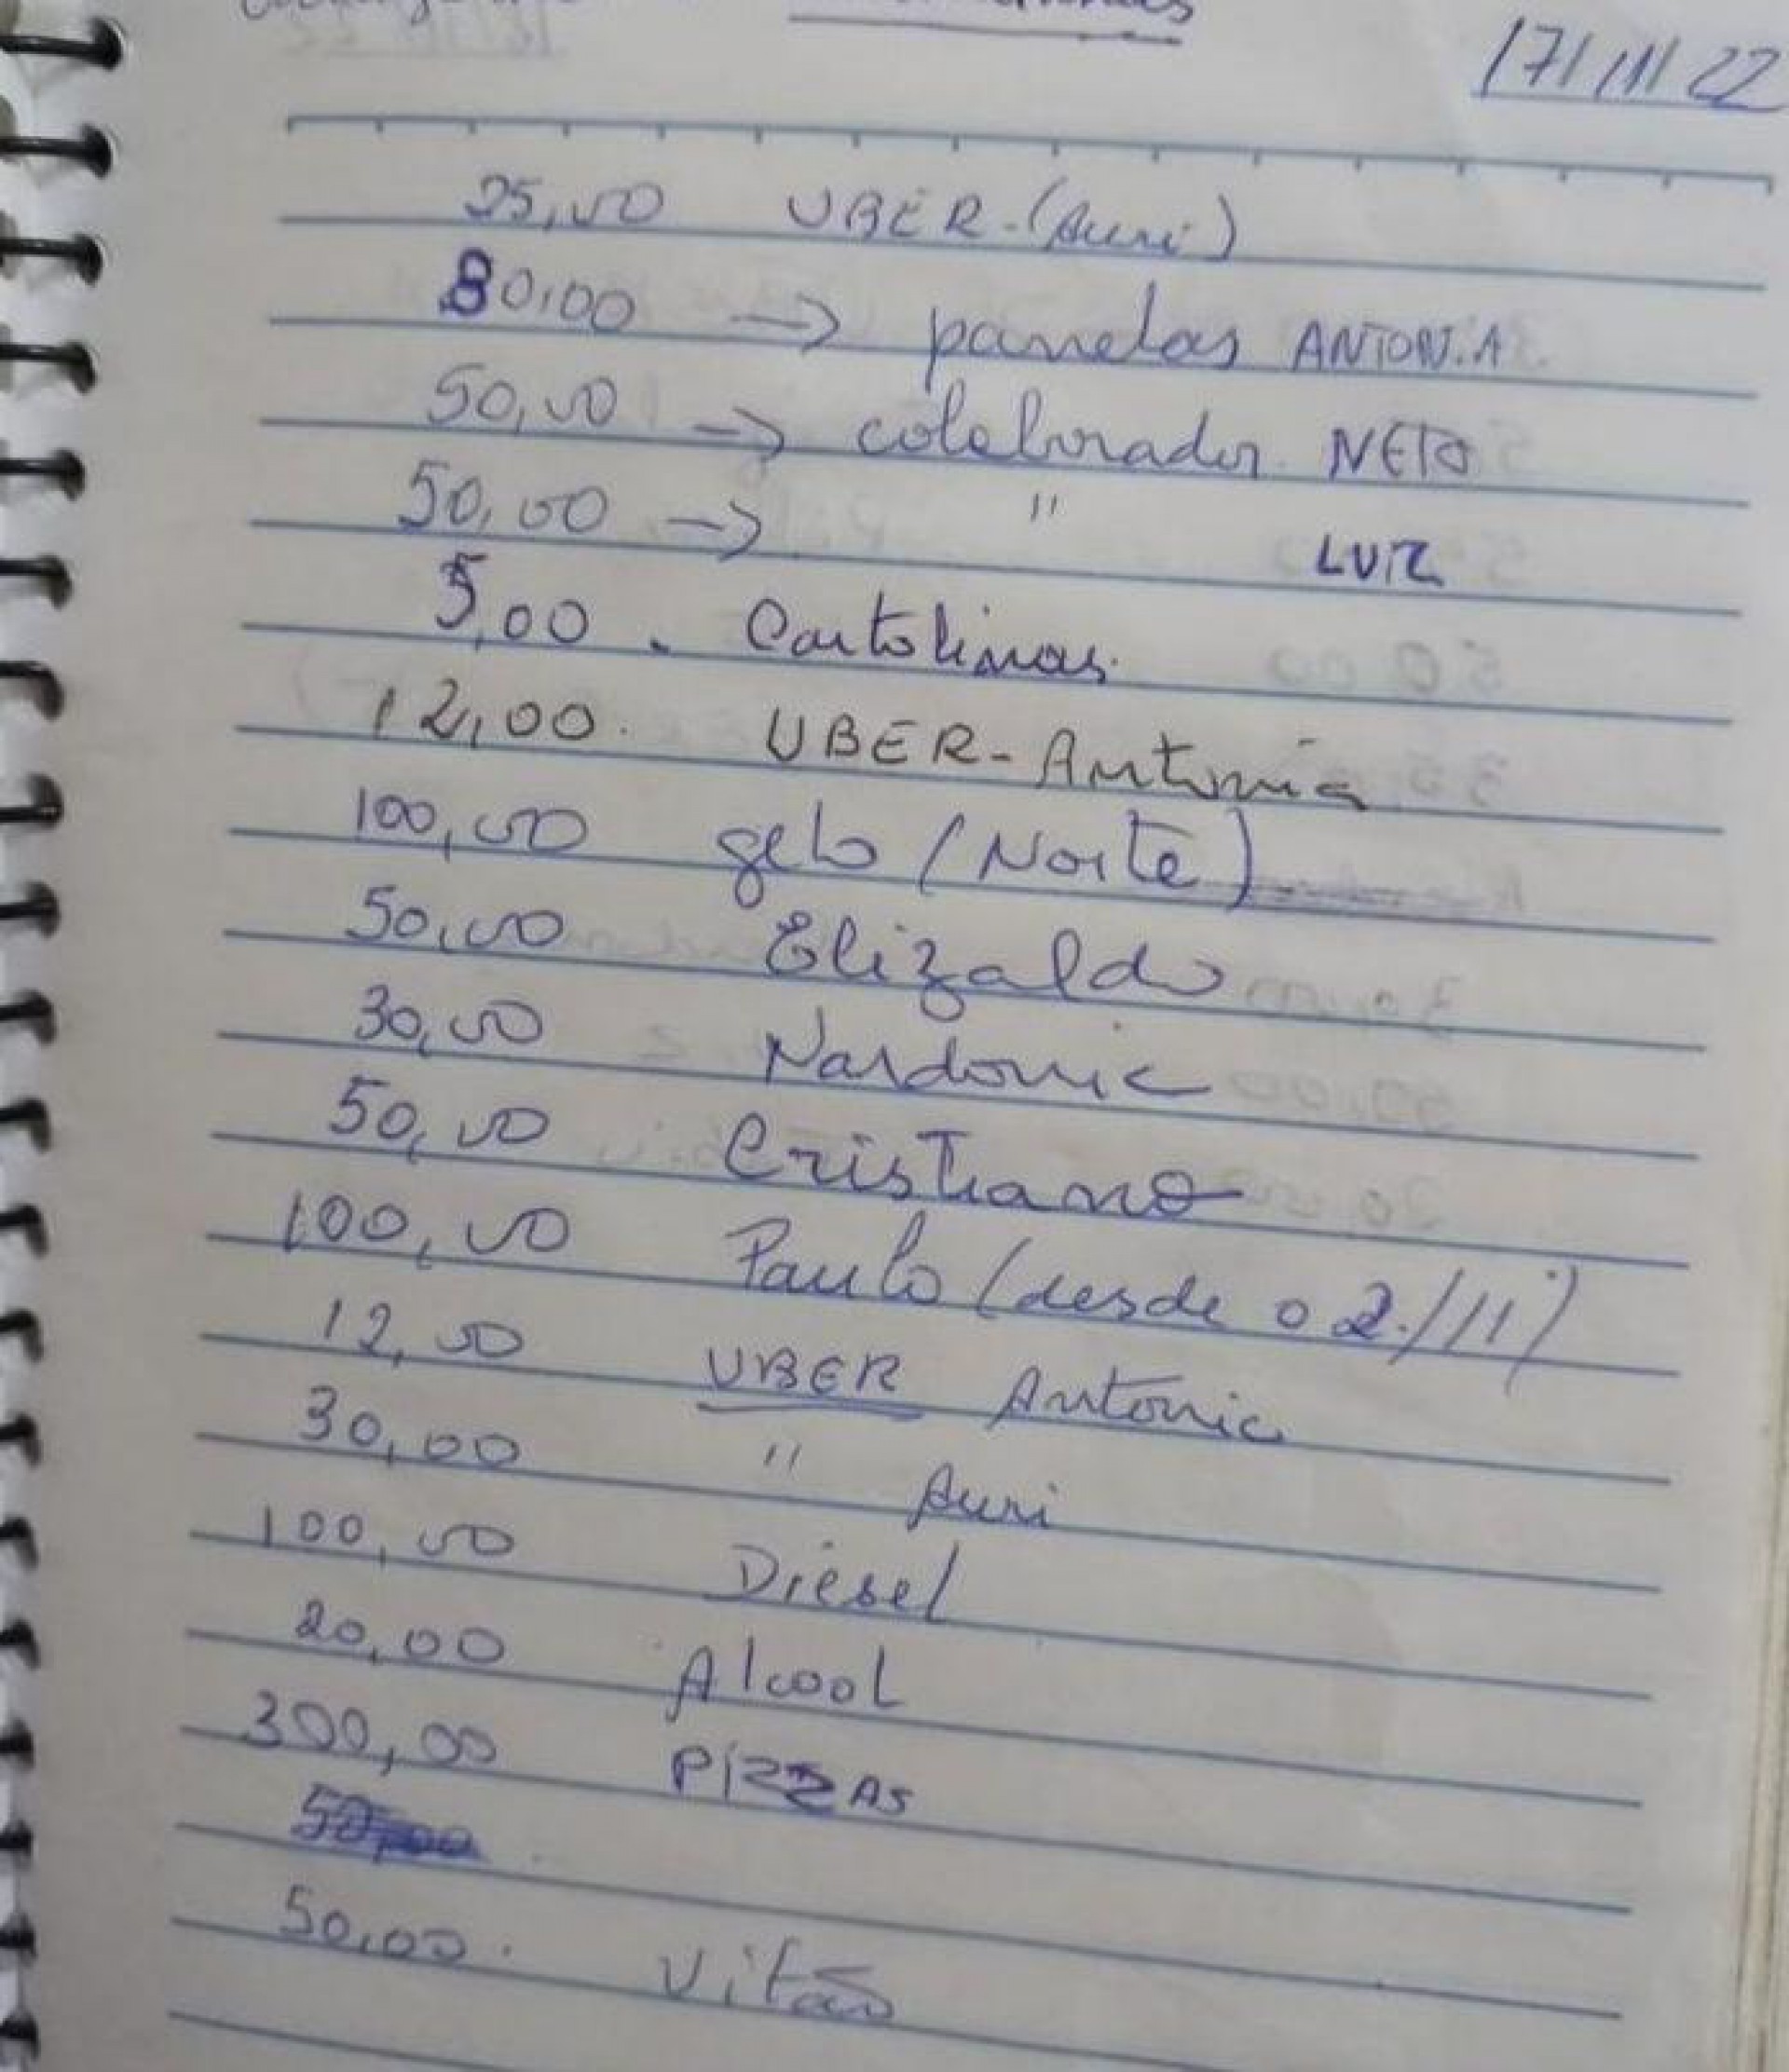 17/11/22
25,00 UBER-(Auri)
80,00 → panelas ANTONIA
50,00 → colaborador NETO
50,00 → " LUIZ
5,00 - Cartolinas.
12,00. UBER-Antonia
100,00 gelo (Norte)
50,00 Elizaldo
30,00 Nardonic
50,00 Cristiano
100,00 Paulo (desde 02/11)
12,00 UBER Antonia
30,00 " Auri
100,00 Diesel
20,00 Alcool
300,00 PIZZAS
50,00
50,00. Vitão